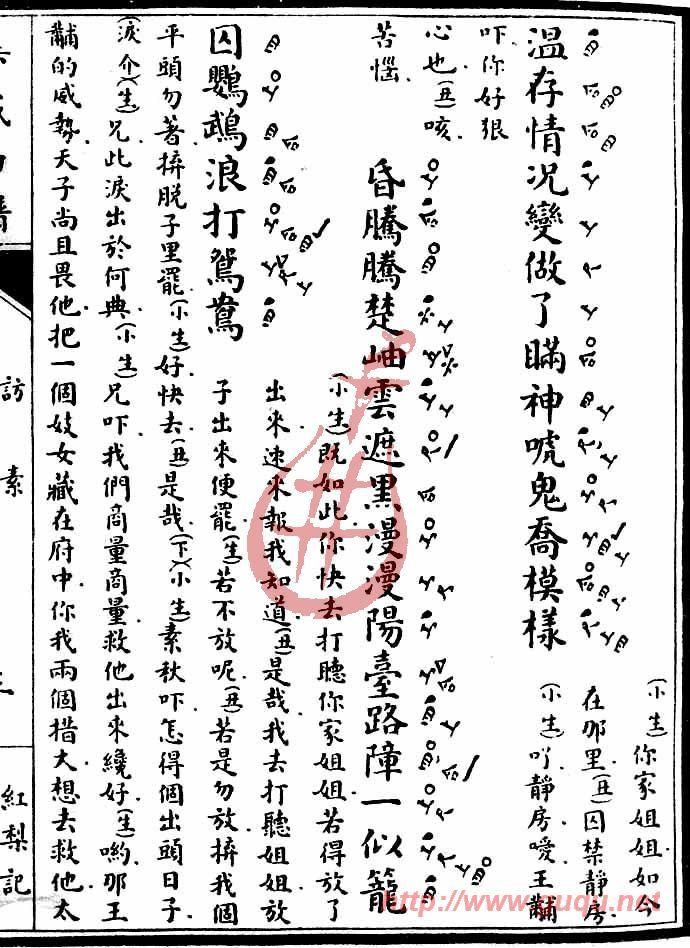 (小生)你家姐姐如今
在那里(丑)囚禁靜房
溫存情況變做了瞞神唬鬼喬模樣
(小生)吖靜房噯王黼
吓你好狠
心也(丑)咳
苦惱
昏騰騰楚岫雲遮黑漫漫陽臺路障一似籠
(小生)既如此你快去打聽你家姐姐若得放了
出來速來報我知道(丑)是哉我去打聽姐姐放
囚鸚鵡浪打鴛鴦
子出來便罷(生)若不放呢(丑)若是勿放拚我個
平頭勿著拚脱子里罷(小生)好快去(丑)是哉(下)(小生)素秋吓怎得個出頭日子
(淚介)(生)兄此淚出於何典(小生)兄吓我們商量商量救他出來纔好(生)喲那王
黼的威勢天子尚且畏他把一個妓女藏在府中你我兩個措大想去救他太
訪素
紅梨記
http://www.ququ.net